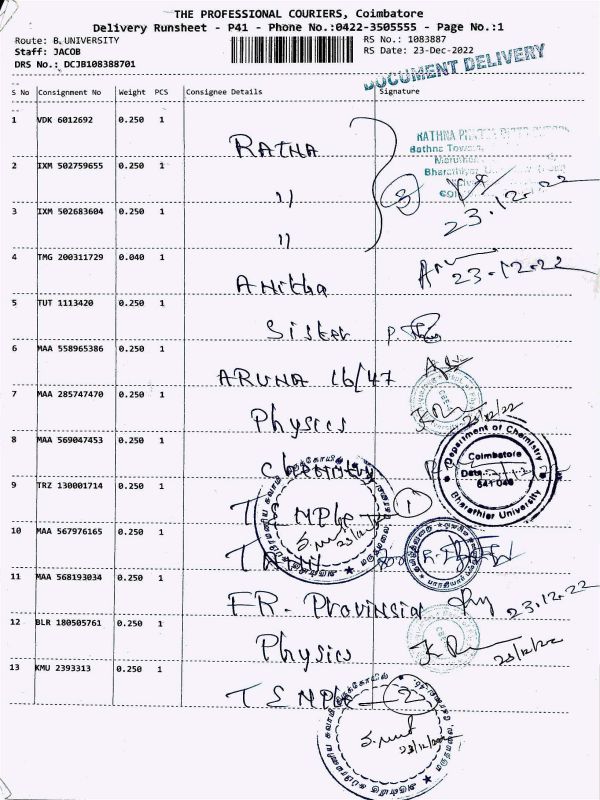 THE PROFESSIONAL COURIERS, Coimbatore
Delivery Runsheet - P41 - Phone No.:0422-3505555 - Page No.:1
Route: B.UNIVERSITY
Staff: JACOB
DRS No.: DCJB108388701
RS No.: 1083887
RS Date: 23-Dec-2022
DOCUMENT DELIVERY
S No Consignment No Weight PCS Consignee Details Signature
1 VDK 6012692 0.250 1 RATHA
2 IXM 502759655 0.250 1 "
3 IXM 502683604 0.250 1 "
3 23.12.22
4 TMG 200311729 0.040 1 Anitha 23-12-22
5 TUT 1113420 0.250 1 Sister
6 MAA 558965386 0.250 1 ARUNA 16/47
7 MAA 285747470 0.250 1 Physics 23/12/22
8 MAA 569047453 0.250 1 Chemistry
Department of Chemistry
Coimbatore
Date
641 046
Bharathier University
9 TRZ 130001714 0.250 1 TS NPle 1
10 MAA 567976165 0.250 1
11 MAA 568193034 0.250 1 FR. Provinsia 23.12.22
12 BLR 180505761 0.250 1 Physics 23/12/22
13 KMU 2393313 0.250 1 TS NPle 2